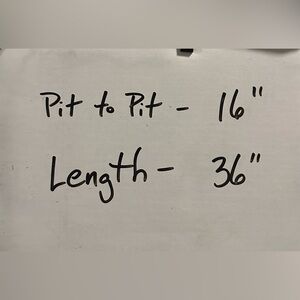 Pit to Pit - 16"
Length - 36"